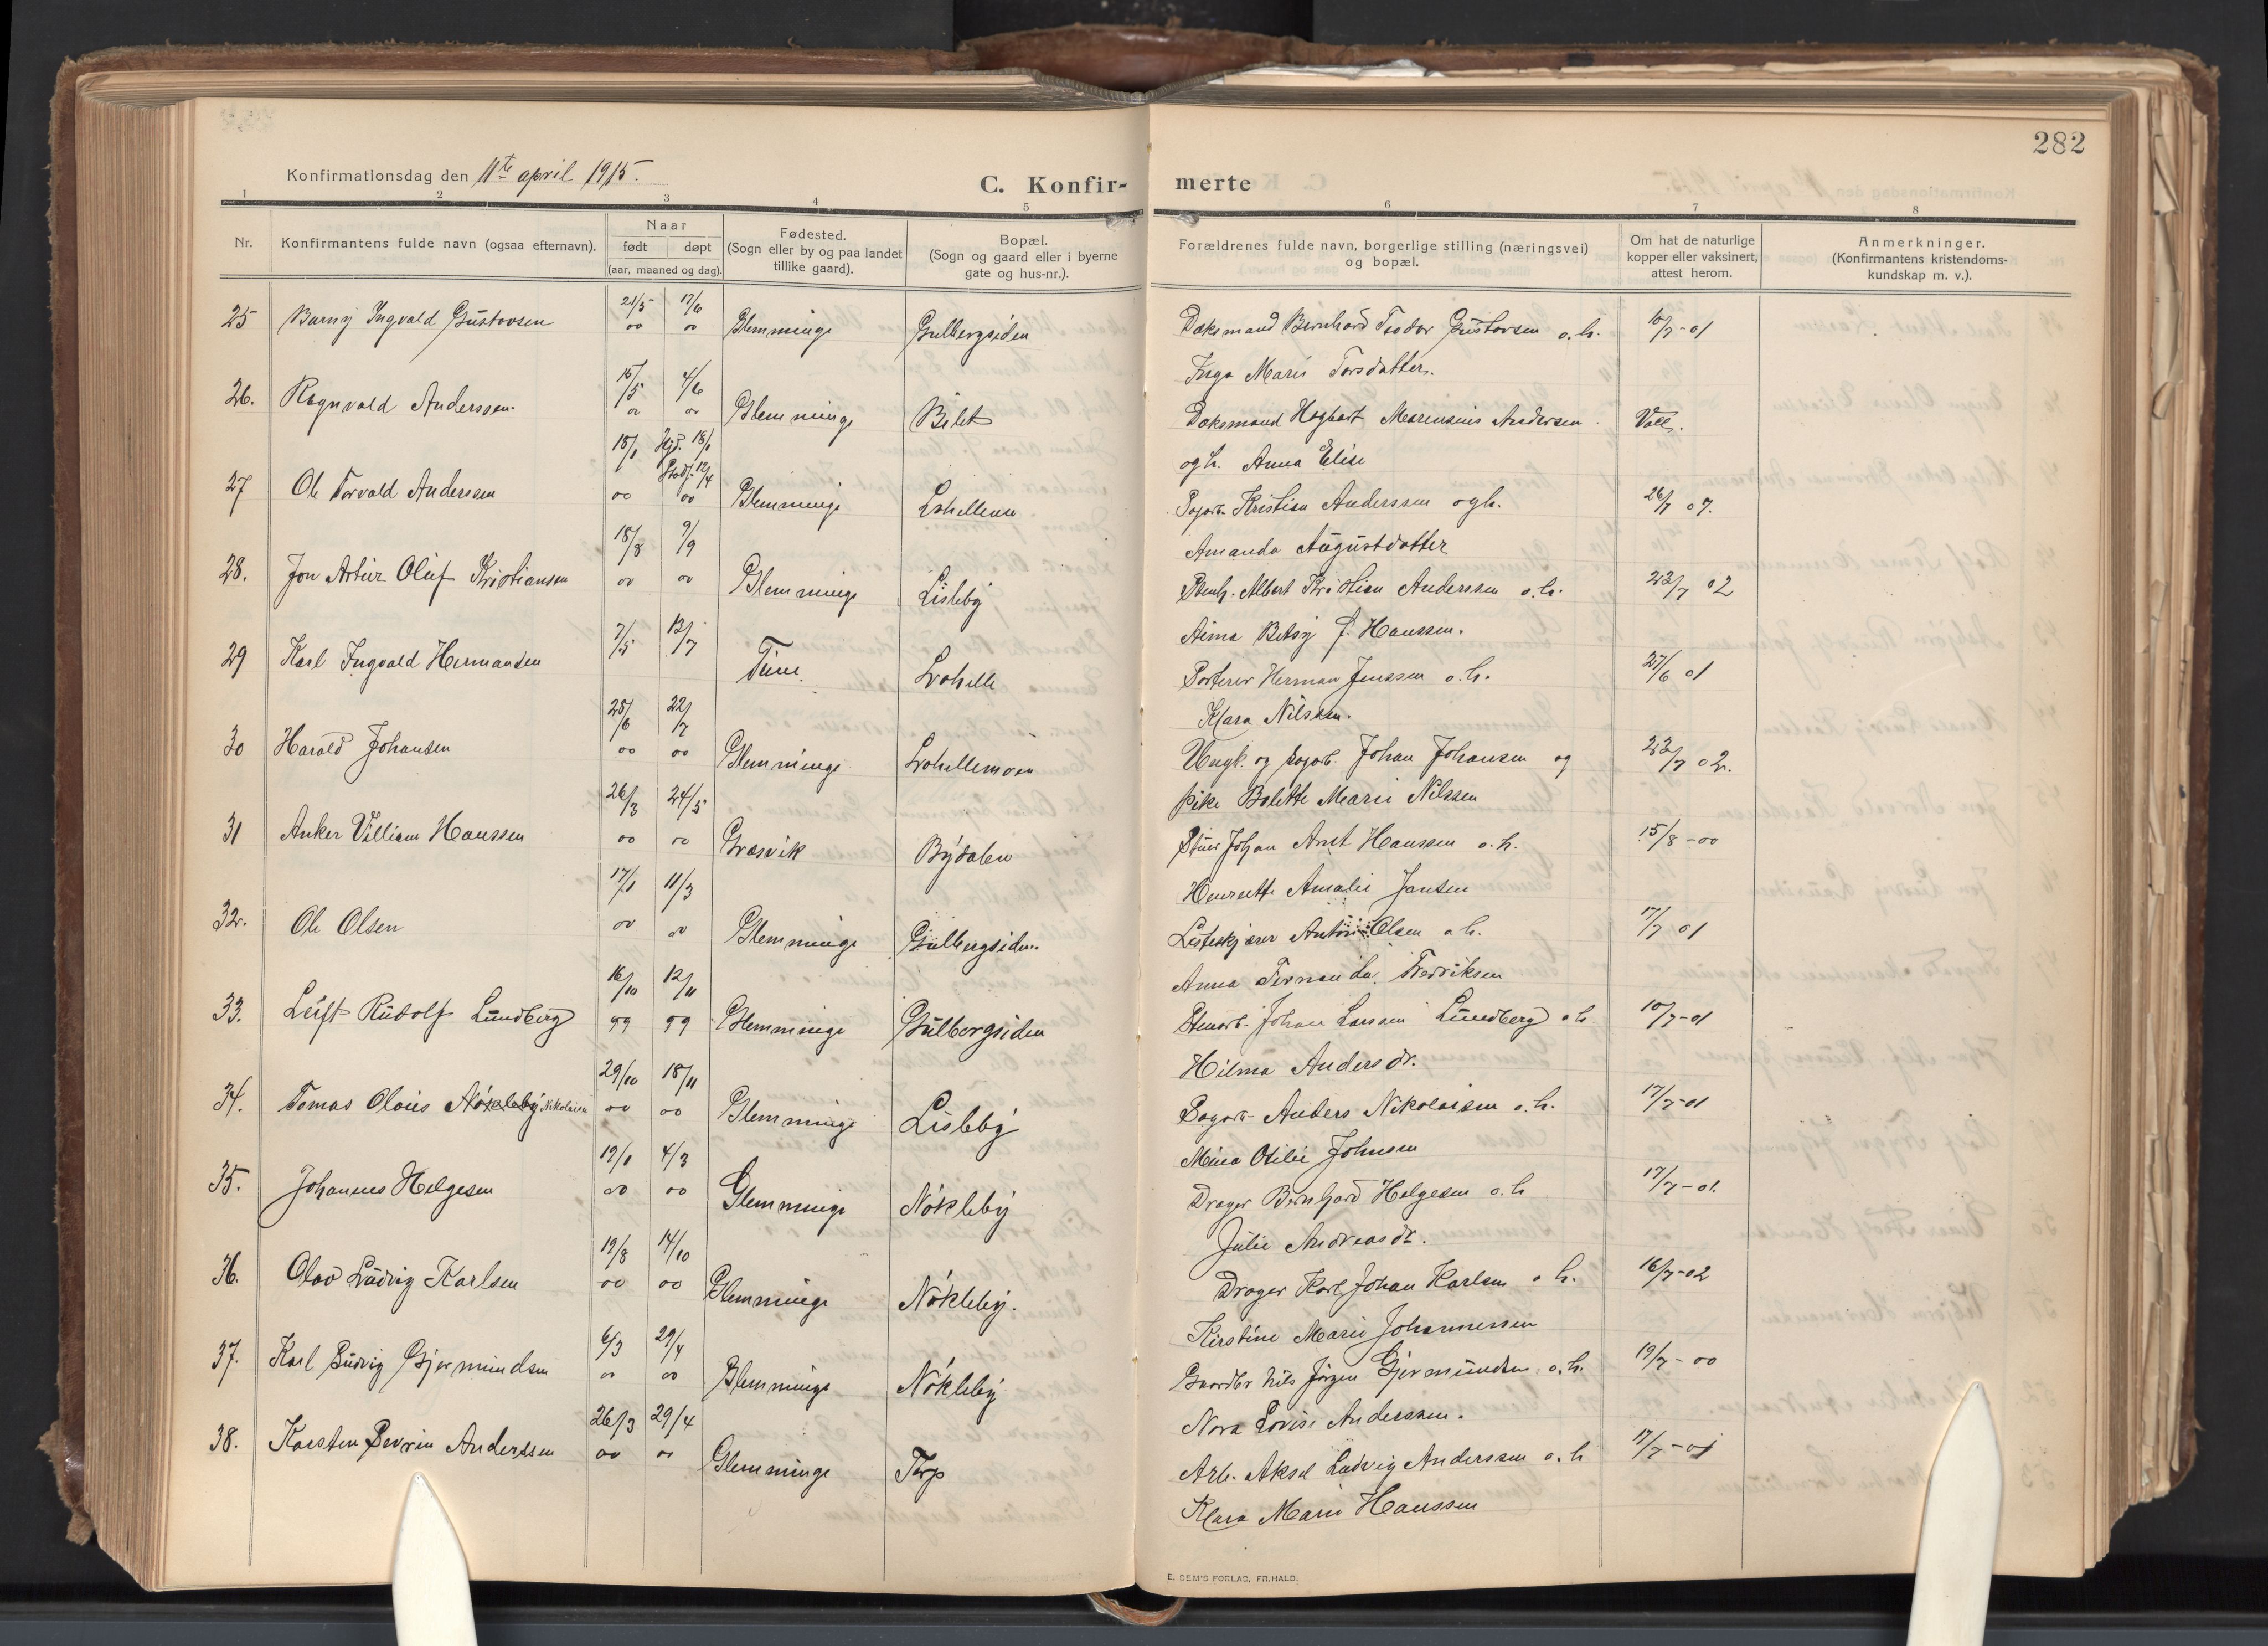 282
Konfirmationsdag den 11te april 1915.
C. Konfir-
merte
1 2 3 4 5 6 7 8
Nr.
Konfirmantens fulde navn (ogsaa efternavn).
Naar
født døpt
(aar, maaned og dag).
Fødested.
(Sogn eller by og paa landet
tillike gaard).
Bopæl.
(Sogn og gaard eller i byerne
gate og hus-nr.).
Forældrenes fulde navn, borgerlige stilling (næringsvei)
og bopæl.
Om hat de naturlige
kopper eller vaksinert,
attest herom.
Anmerkninger.
(Konfirmantens kristendoms-
kundskap m. v.).
21/5 17/6
25 Barny Ingvald Gustavsen 00 00 Glemminge Gulbergsiden Daksmand Bernhard Teodor Gustavsen o. h. 10/7-01
Inga Marie Torsdatter.
15/5 4/6
26. Ragnvald Anderssen. 00 00 Glemminge Bilet Daksmand Hagbart Marensius Andersen Vacc.
og h. Anna Elise
18/1 Hjd. 18/1 Stadf. 12/4
27 Ole Torvald Anderssen 00 00 Glemminge Lohellen Sagarb. Kristian Anderssen og h. 26/7 07.
Amanda Augustdatter
18/8 9/9
28. Jon Artur Oluf Kristiansen 00 00 Glemminge Lisleby Stenh. Albert Kristian Anderssen o. h. 23/7 02
Aima Betsy f. Hanssen.
7/5 13/7
29 Karl Ingvald Hermansen Tune Lohelle Sorterer Herman Jenssen o. h. 27/6 01
Klara Nilssen.
25/6 22/7
30 Harald Johansen 00 00 Glemminge Lohellemoen Ungk. og sagarb. Johan Johansen og 23/7 02.
pike Bolette Marie Nilssen
26/3 24/5
31 Anker Villiam Hanssen 00 00 Græsvik Bydalen Stuer Johan Arnt Hanssen o. h. 15/8-00
Henriette Amalie Jansen
17/1 11/3
32. Ole Olsen 00 00 Glemminge Gulbergsiden Listeskjærer Anton Olsen o. h. 17/7 01
Anna Fernanda Fredriksen
16/10 12/11
33. Leift Rudolf Lundberg 99 99 Glemminge Gulbergsiden Stenarb. Johan Larssen Lundberg o h 10/7-01
Hilma Andersdr.
29/10 18/11
34. Tomas Olaus Nøkleby Nikolaisen 00 00 Glemminge Lisleby Sagarb. Anders Nikolaisen o. h. 17/7-01
Mina Otilie Johnsen
19/1 4/3
35. Johannes Helgesen 00 00 Glemminge Nøkleby Drager Bernhard Helgesen o. h 17/7-01.
Julie Andreasdr.
19/8 14/10
36. Olav Ludvig Karlsen 00 00 Glemminge Nøkleby. Drager Karl Johan Karlsen o h. 16/7-02
Kirstine Marie Johannessen
6/3 29/4
37. Karl Ludvig Gjermundsen 00 00 Glemminge Nøkleby Gaardbr Nils Jørgen Gjermundsen o. h. 19/7-00
Nora Lovise Anderssen.
26/3 29/4
38. Karsten Severin Anderssen 00 00 Glemminge Torp Arb. Aksel Ludvig Anderssen o. h 17/7-01
Klara Marie Hanssen
E. SEM'S FORLAG, FR.HALD.